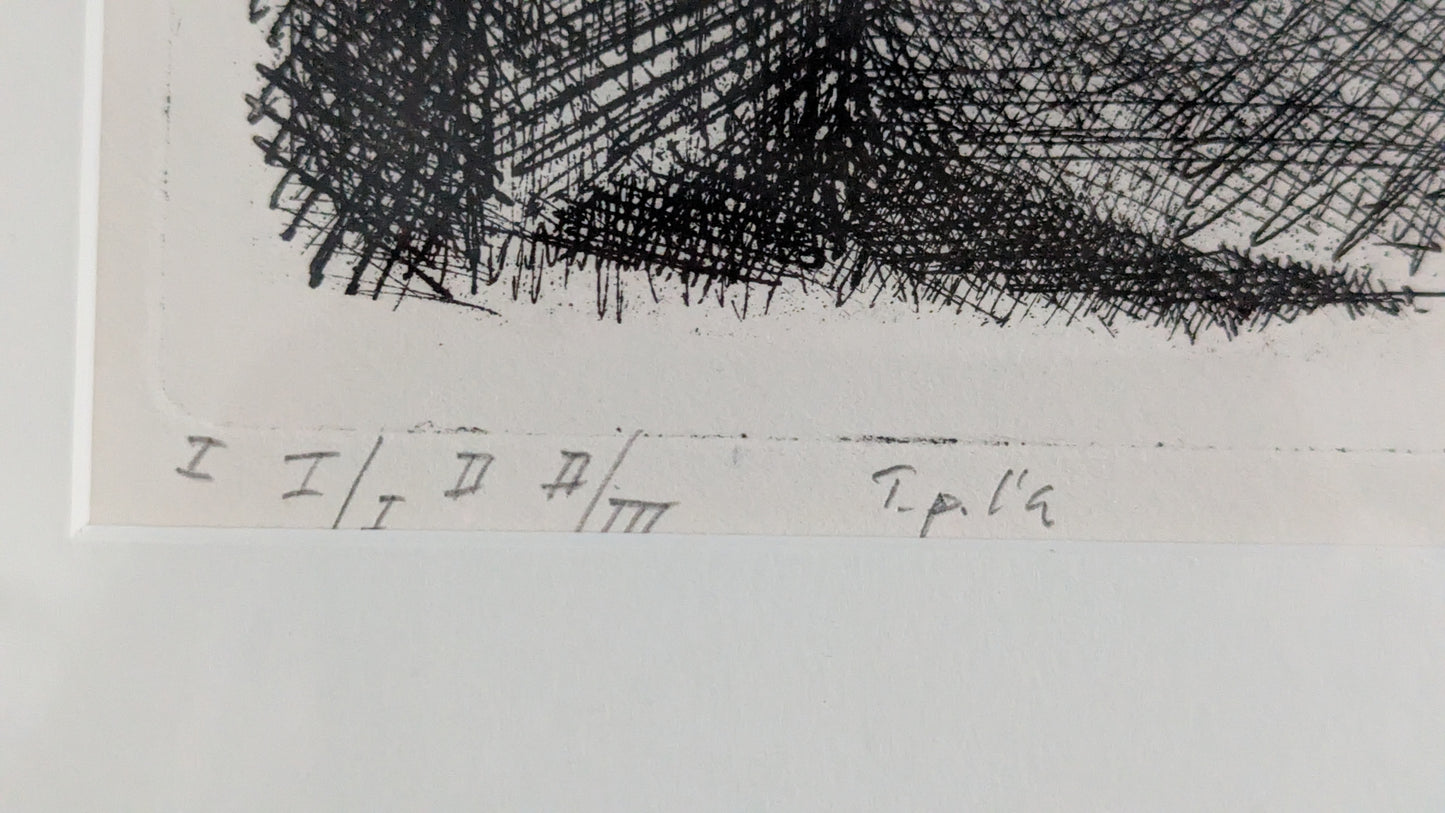 I I/I II II/III T.p. l'a